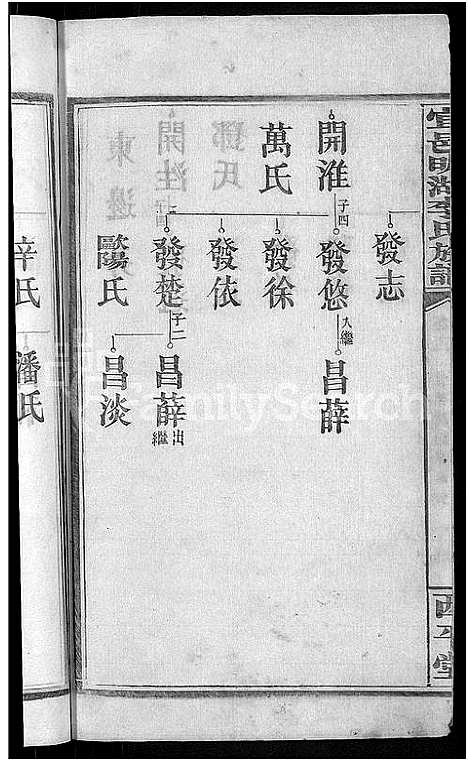 宜邑明湖李氏族譜
西平堂
發志
開淮 子四
發悠 入繼
昌薛
萬氏
發徐
發依
發楚 子二
昌薛 出繼
歐陽氏
昌淡
辛氏
潘氏
FamilySearch